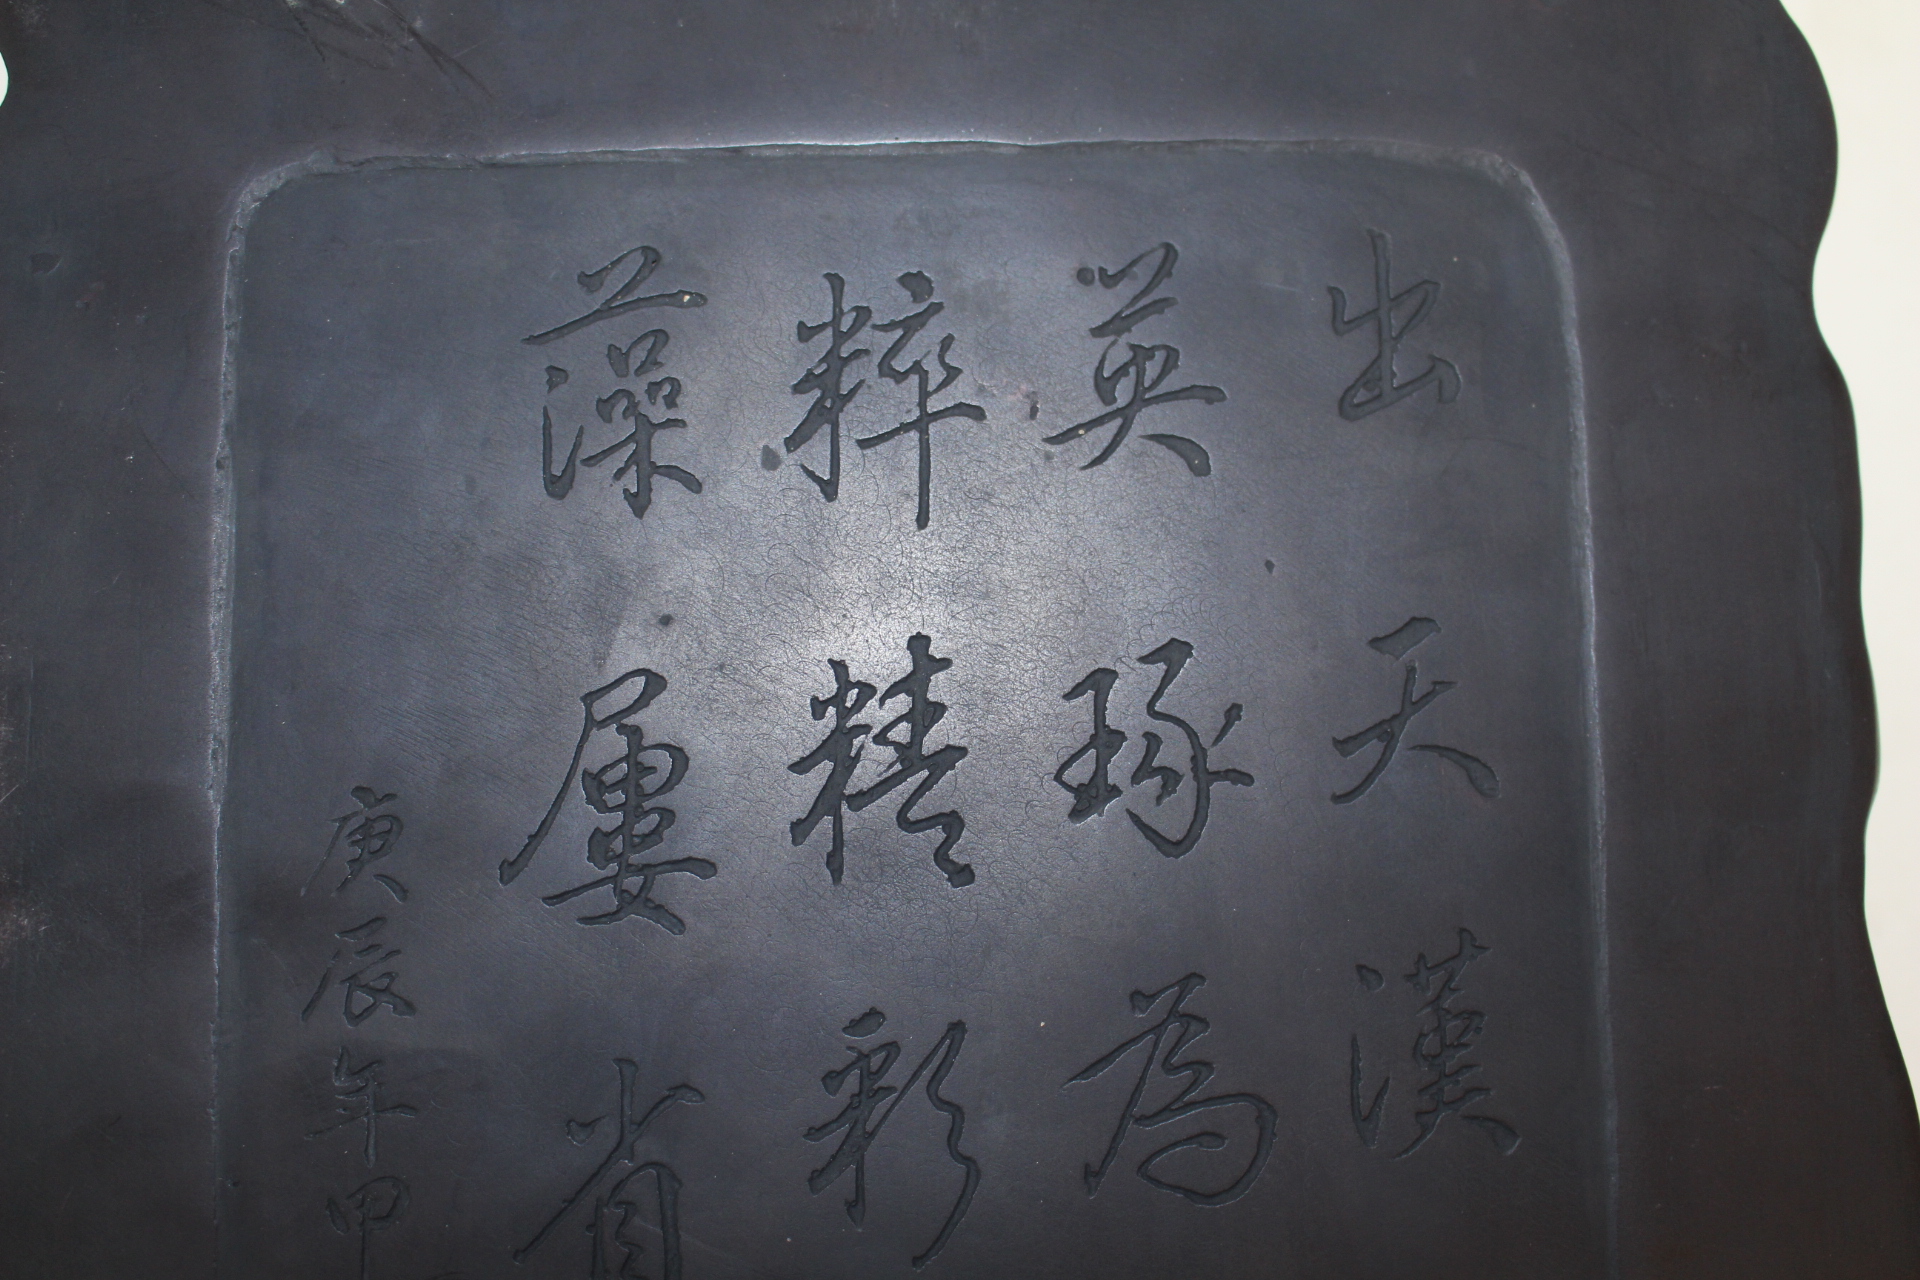 出天漢
英琢為
粹精彩
藻屢省
庚辰年甲